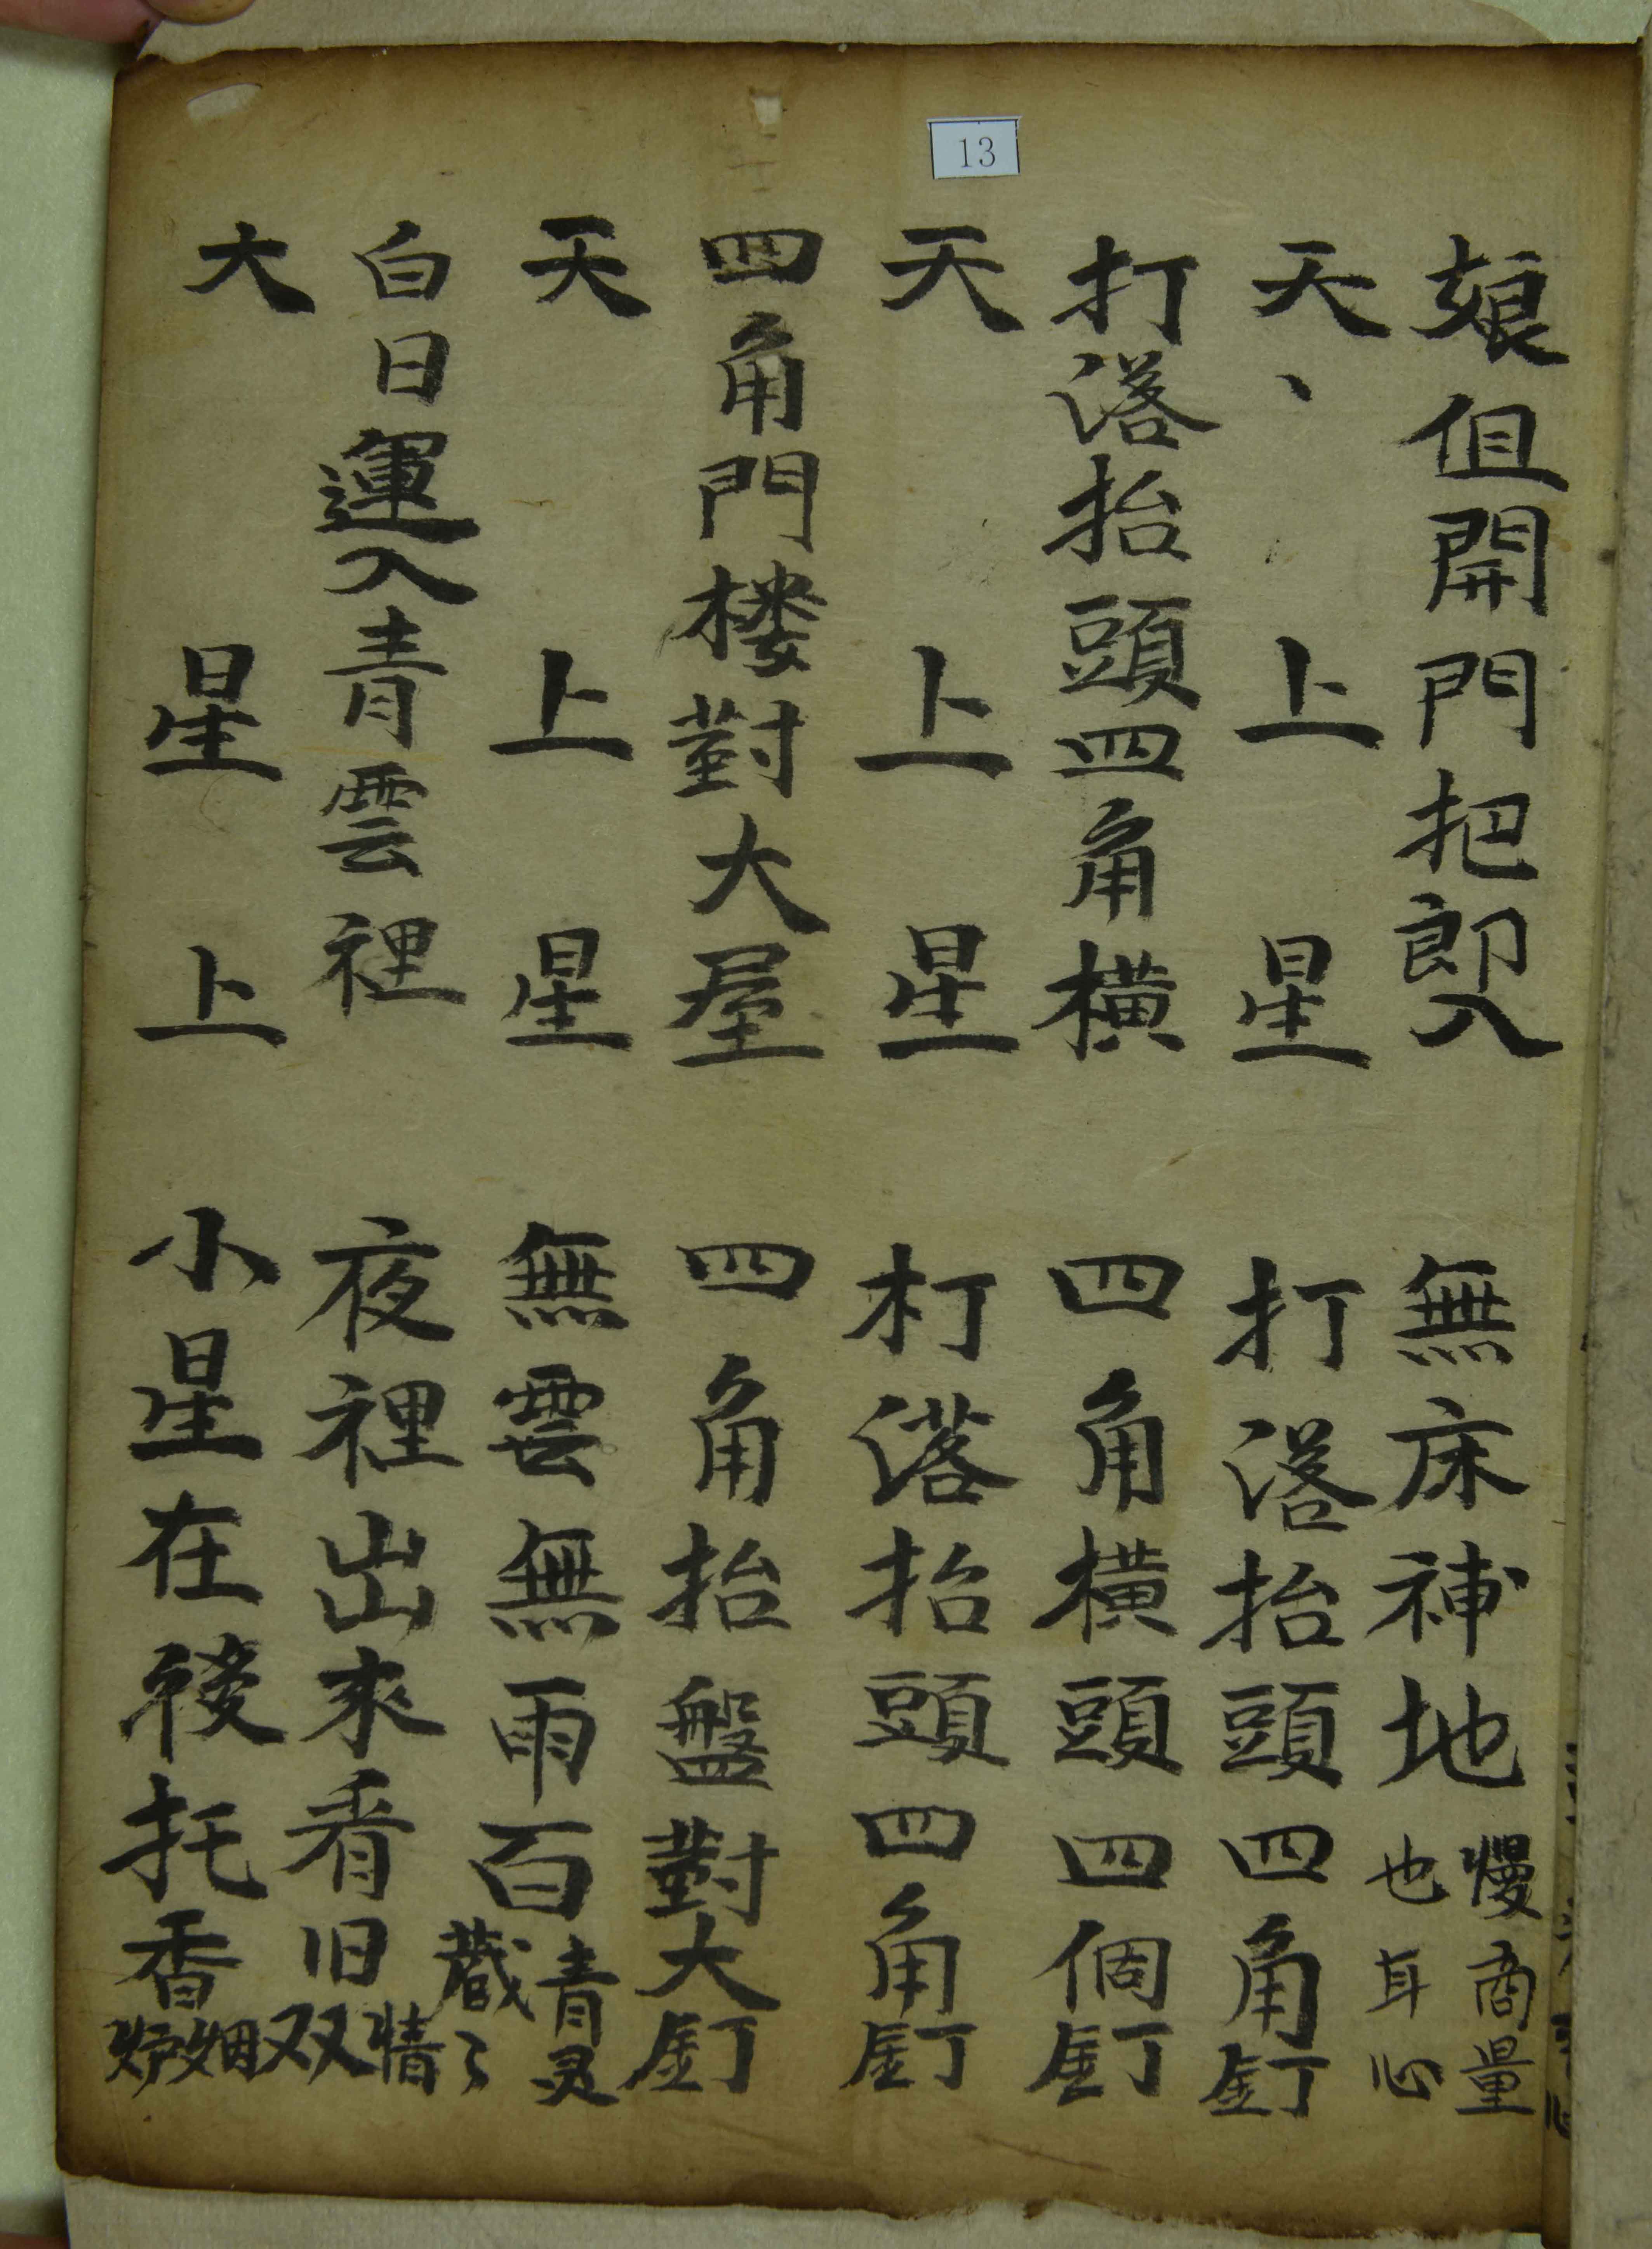 13
娘伹開門把郎入 無床補地慢商量也耳心
天、上星 打落抬頭四角釘
打落抬頭四角橫 四角橫頭四個釘
天上星 打落抬頭四角釘
四角門楼對大屋 四角抬盤對大釘
天上星 無雲無雨百青灵藏了
白日運入青雲裡 夜裡出來看旧情双
大星上 小星在後托香烟炉